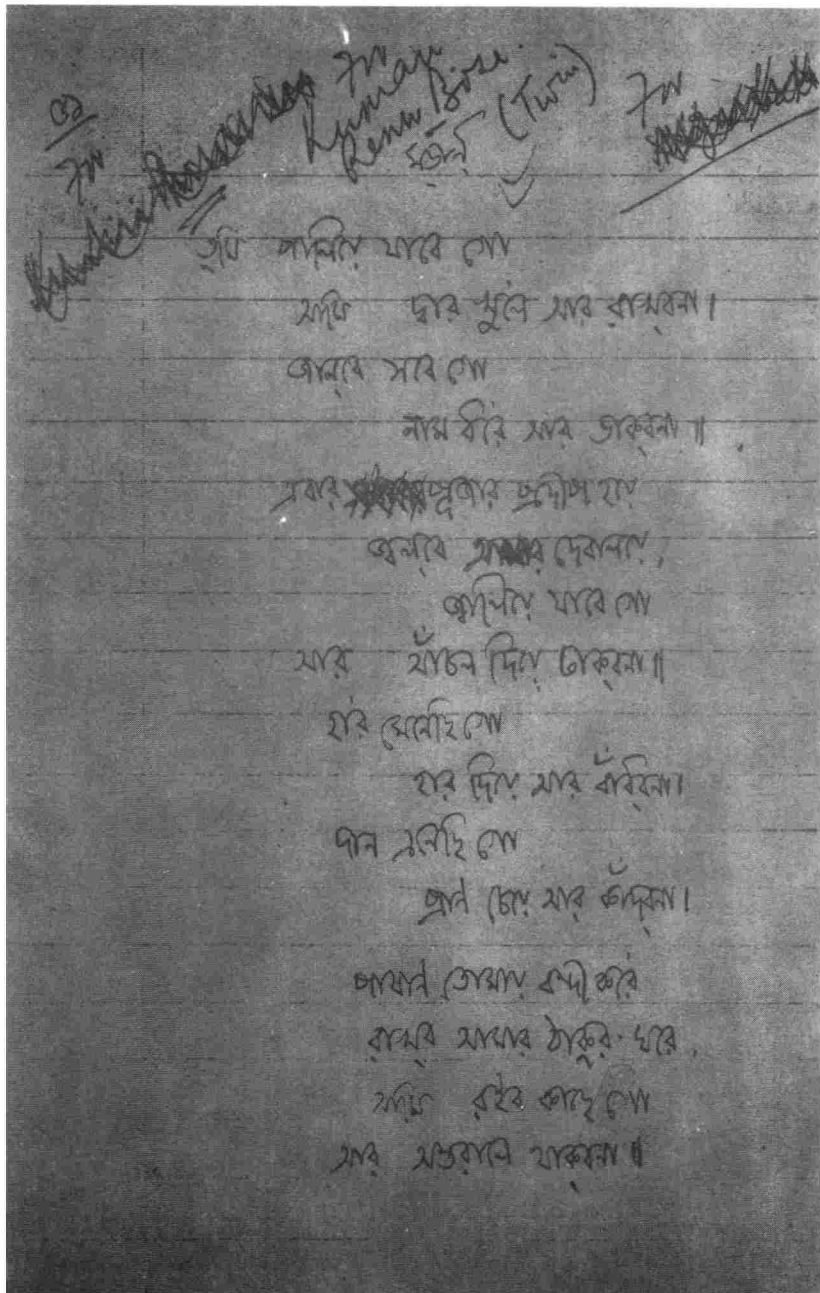 ৩১
For
For
Kumari
Renu Bose.
(Twin)
For
তুমি পালিয়ে যাবে গো
আমি দ্বার খুলে আর রাখ্‌বনা।
জান্‌বে সবে গো
নাম ধরে আর ডাক্‌বনা॥
এবার পূজার প্রদীপ হয়ে
জ্বল্‌বে আমার দেবালয়ে,
জ্বালিয়ে যাবে গো
আর আঁচল দিয়ে ঢাক্‌বনা॥
হার মেনেছি গো
হার দিয়ে আর বাঁধ্‌বনা।
দান এনেছি গো
প্রাণ চেয়ে আর কাঁদ্‌বনা।
পাষাণ তোমায় বন্দী করে
রাখ্‌ব আমার ঠাকুর-ঘরে,
আমি রইব কাছে গো
আর অন্তরালে থাক্‌বনা॥